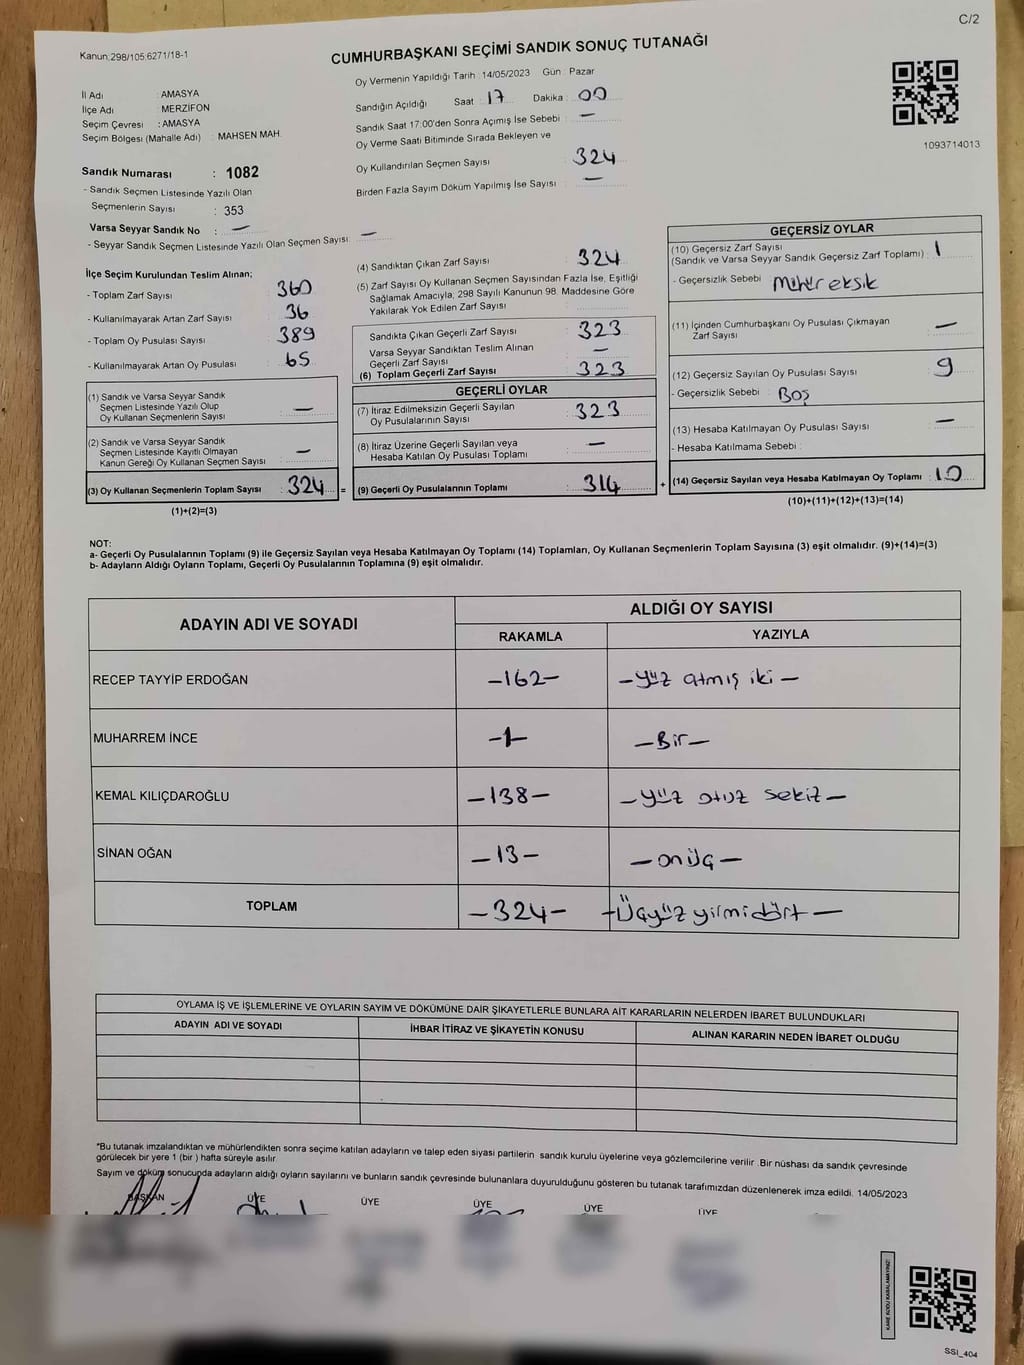 C/2
Kanun:298/105:6271/18-1
CUMHURBAŞKANI SEÇİMİ SANDIK SONUÇ TUTANAĞI
1093714013
İl Adı : AMASYA
İlçe Adı : MERZİFON
Seçim Çevresi : AMASYA
Seçim Bölgesi (Mahalle Adı) : MAHSEN MAH.
Sandık Numarası : 1082
- Sandık Seçmen Listesinde Yazılı Olan
Seçmenlerin Sayısı : 353
Varsa Seyyar Sandık No : —
- Seyyar Sandık Seçmen Listesinde Yazılı Olan Seçmen Sayısı: —
Oy Vermenin Yapıldığı Tarih : 14/05/2023 Gün : Pazar
Sandığın Açıldığı Saat : 17 Dakika : 00
Sandık Saat 17:00'den Sonra Açımış İse Sebebi : —
Oy Verme Saati Bitiminde Sırada Bekleyen ve
Oy Kullandırılan Seçmen Sayısı : 324
Birden Fazla Sayım Döküm Yapılmış İse Sayısı : —
İlçe Seçim Kurulundan Teslim Alınan;
- Toplam Zarf Sayısı : 360
- Kullanılmayarak Artan Zarf Sayısı : 36
- Toplam Oy Pusulası Sayısı : 389
- Kullanılmayarak Artan Oy Pusulası : 65
(1) Sandık ve Varsa Seyyar Sandık
Seçmen Listesinde Yazılı Olup
Oy Kullanan Seçmenlerin Sayısı : —
(2) Sandık ve Varsa Seyyar Sandık
Seçmen Listesinde Kayıtlı Olmayan
Kanun Gereği Oy Kullanan Seçmen Sayısı : —
(3) Oy Kullanan Seçmenlerin Toplam Sayısı : 324 =
(1)+(2)=(3)
(4) Sandıktan Çıkan Zarf Sayısı : 324
(5) Zarf Sayısı Oy Kullanan Seçmen Sayısından Fazla İse, Eşitliği
Sağlamak Amacıyla, 298 Sayılı Kanunun 98. Maddesine Göre
Yakılarak Yok Edilen Zarf Sayısı :
Sandıkta Çıkan Geçerli Zarf Sayısı : 323
Varsa Seyyar Sandıktan Teslim Alınan
Geçerli Zarf Sayısı : —
(6) Toplam Geçerli Zarf Sayısı : 323
GEÇERLİ OYLAR
(7) İtiraz Edilmeksizin Geçerli Sayılan
Oy Pusulalarının Sayısı : 323
(8) İtiraz Üzerine Geçerli Sayılan veya
Hesaba Katılan Oy Pusulası Toplamı : —
(9) Geçerli Oy Pusulalarının Toplamı : 314 +
GEÇERSİZ OYLAR
(10) Geçersiz Zarf Sayısı
(Sandık ve Varsa Seyyar Sandık Geçersiz Zarf Toplamı) : 1
- Geçersizlik Sebebi : Mühür eksik
(11) İçinden Cumhurbaşkanı Oy Pusulası Çıkmayan
Zarf Sayısı : —
(12) Geçersiz Sayılan Oy Pusulası Sayısı : 9
- Geçersizlik Sebebi : Boş
(13) Hesaba Katılmayan Oy Pusulası Sayısı : —
- Hesaba Katılmama Sebebi :
(14) Geçersiz Sayılan veya Hesaba Katılmayan Oy Toplamı : 10
(10)+(11)+(12)+(13)=(14)
NOT:
a- Geçerli Oy Pusulalarının Toplamı (9) ile Geçersiz Sayılan veya Hesaba Katılmayan Oy Toplamı (14) Toplamları, Oy Kullanan Seçmenlerin Toplam Sayısına (3) eşit olmalıdır. (9)+(14)=(3)
b- Adayların Aldığı Oyların Toplamı, Geçerli Oy Pusulalarının Toplamına (9) eşit olmalıdır.
ADAYIN ADI VE SOYADI ALDIĞI OY SAYISI
RAKAMLA YAZIYLA
RECEP TAYYİP ERDOĞAN –162– –yüz atmış iki–
MUHARREM İNCE –1– –Bir–
KEMAL KILIÇDAROĞLU –138– –yüz otuz sekiz–
SİNAN OĞAN –13– –onüç–
TOPLAM –324– –Üçyüz yirmidört–
OYLAMA İŞ VE İŞLEMLERİNE VE OYLARIN SAYIM VE DÖKÜMÜNE DAİR ŞİKAYETLERLE BUNLARA AİT KARARLARIN NELERDEN İBARET BULUNDUKLARI
ADAYIN ADI VE SOYADI İHBAR İTİRAZ VE ŞİKAYETİN KONUSU ALINAN KARARIN NEDEN İBARET OLDUĞU
*Bu tutanak imzalandıktan ve mühürlendikten sonra seçime katılan adayların ve talep eden siyasi partilerin sandık kurulu üyelerine veya gözlemcilerine verilir .Bir nüshası da sandık çevresinde
görülecek bir yere 1 (bir ) hafta süreyle asılır.
Sayım ve döküm sonucunda adayların aldığı oyların sayılarını ve bunların sandık çevresinde bulunanlara duyurulduğunu gösteren bu tutanak tarafımızdan düzenlenerek imza edildi. 14/05/2023
BAŞKAN ÜYE ÜYE ÜYE ÜYE ÜYE
KARE KODU KARALAMAYINIZ!
SSI_404